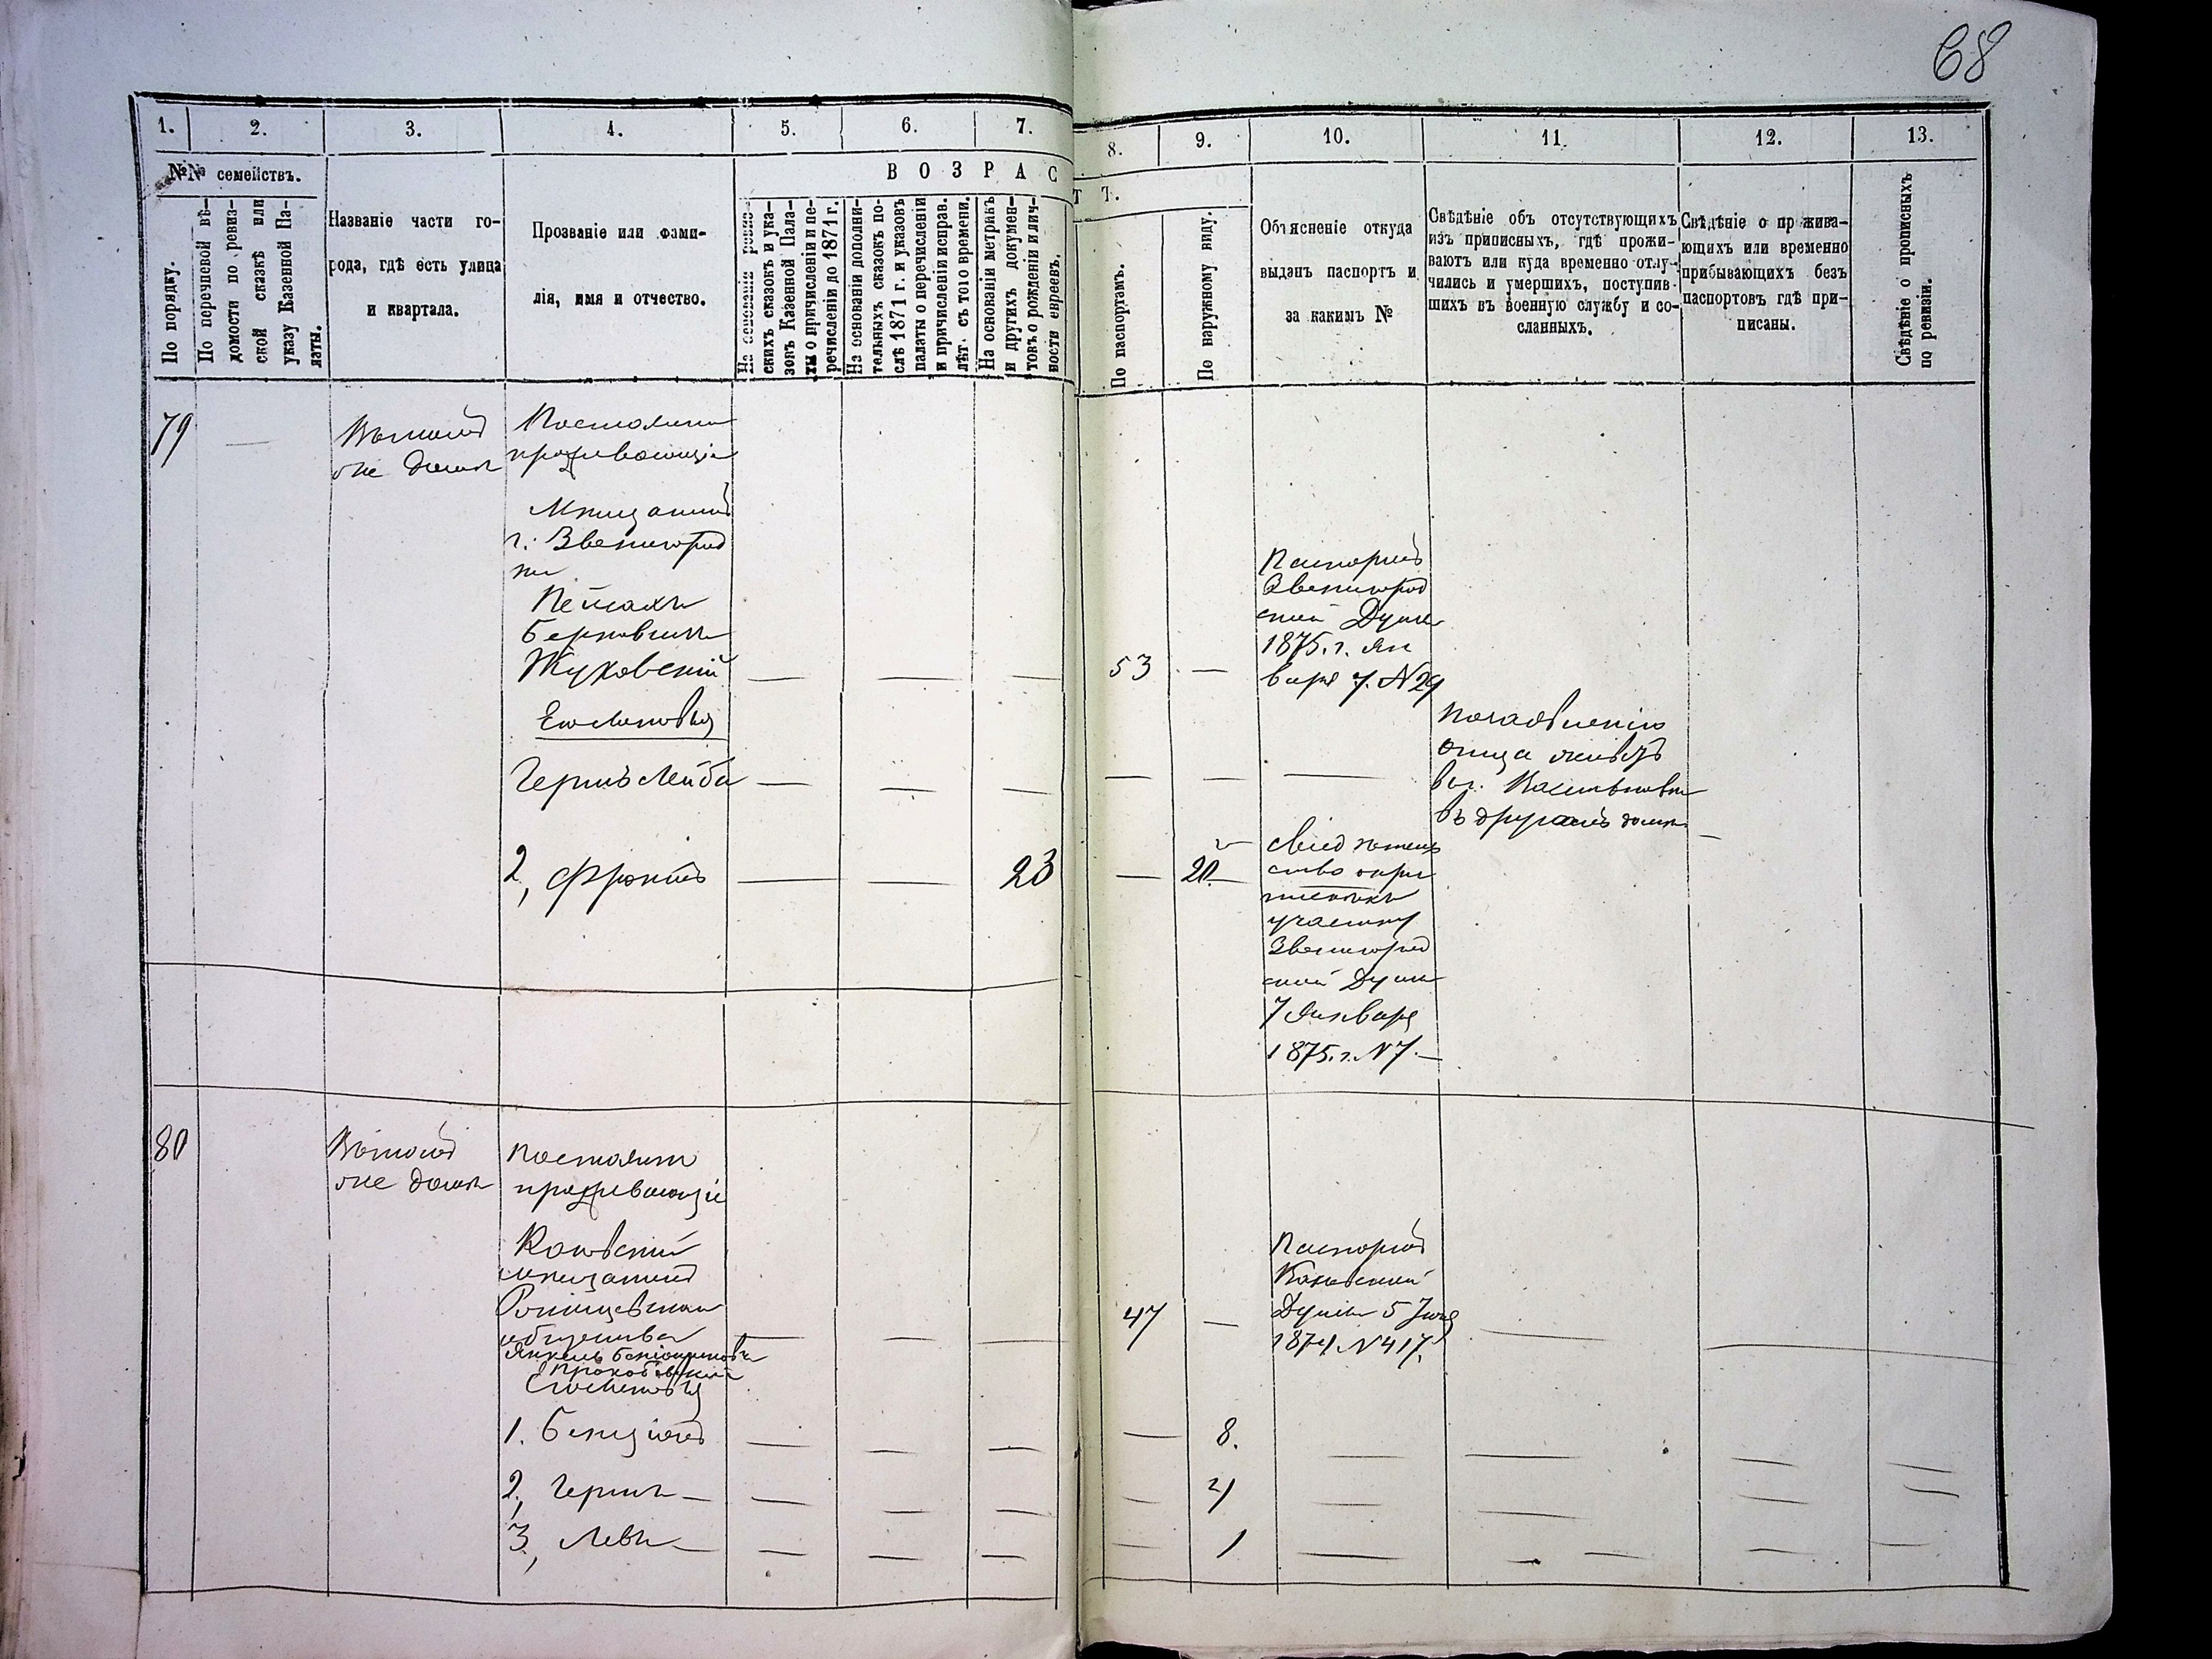 68
1. 2. 3. 4. 5. 6. 7. 8. 9. 10. 11. 12. 13.
№№ семействъ.
По порядку.
По перечневой вѣ-
домости по ревиз-
ской сказкѣ или
указу Казенной Па-
латы.
Названіе части го-
рода, гдѣ есть улица
и квартала.
Прозваніе или фами-
лія, имя и отчество.
ВОЗРАСТ Т.
На основаніи ревиз-
скихъ сказокъ и ука-
зовъ Казенной Пала-
ты о причисленіи и пе-
речисленіи до 1871 г.
На основаніи дополни-
тельныхъ сказокъ по-
слѣ 1871 г. и указовъ
палаты о перечисленіи
и причисленіи исправ.
лѣт. съ того времени.
На основаніи метрикъ
и другихъ докумен-
товъ о рожденіи и лич-
ности евреевъ.
По паспортамъ.
По наружному виду.
Объясненіе откуда
выданъ паспортъ и
за какимъ №
Свѣдѣніе объ отсутствующихъ
изъ приписныхъ, гдѣ прожи-
ваютъ или куда временно отлу-
чились и умершихъ, поступив-
шихъ въ военную службу и со-
сланныхъ.
Свѣдѣніе о пр жива-
ющихъ или временно
прибывающихъ безъ
паспортовъ гдѣ при-
писаны.
Свѣдѣніе о прописныхъ
по ревизіи.
79 —
Втомъ
же домѣ
Постоянно
проживающіе
Мѣщанинъ
г. Звенигород
ки
Пейсахъ
Берковичъ
Жуковскій — — — 53 —
Паспортъ
Звенигород
ской Думы
1875. г. Ян
варя 7. N 29
Его Сыновья
Гершъ Лейба — — — — — —
По заявленію
отца живетъ
въ
въ другомъ домѣ
2, Фроимъ — — 23 — 20
Свидѣтель
ство о при
пискѣ къ
участку
Звенигород
ской Думы
7 Января
1875. г. N 7. —
80
Втомъ
же домѣ
Постоянно
проживающіе
Каневскій
мѣщанинъ
общества — — — 47 —
Янкель
Сыновья
Паспортъ
Каневской
Думы 5
1874 N 417.
1. Бенціонъ — — — — 8. — — — —
2, Гершъ — — — — — 4 — — — —
3, Левъ — — — — — 1 — — — —